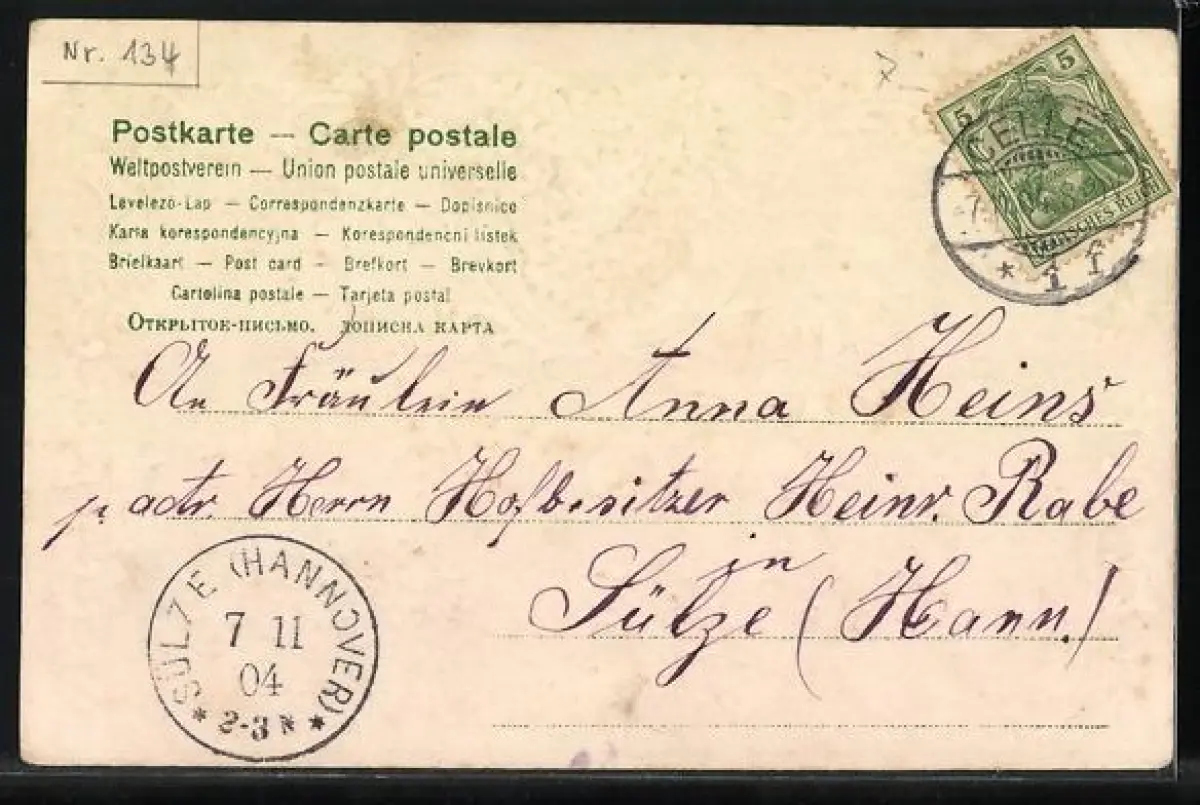 Nr. 134
Postkarte — Carte postale
Weltpostverein — Union postale universelle
Levelező-Lap — Correspondenzkarte — Dopisnice
Karta korespondencyjna — Korespondenční lístek
Briefkaart — Post card — Brefkort — Brevkort
Cartolina postale — Tarjeta postal
Открытое-письмо. дописна карта
5 5
DEUTSCHES REICH
CELLE
* 1 f
An Fräulein Anna Heins
p. adr. Herrn Hofbesitzer Heinr. Rabe
in
Sülze (Hann.)
SÜLZE (HANNOVER)
7 11
04
* 2-3 N *